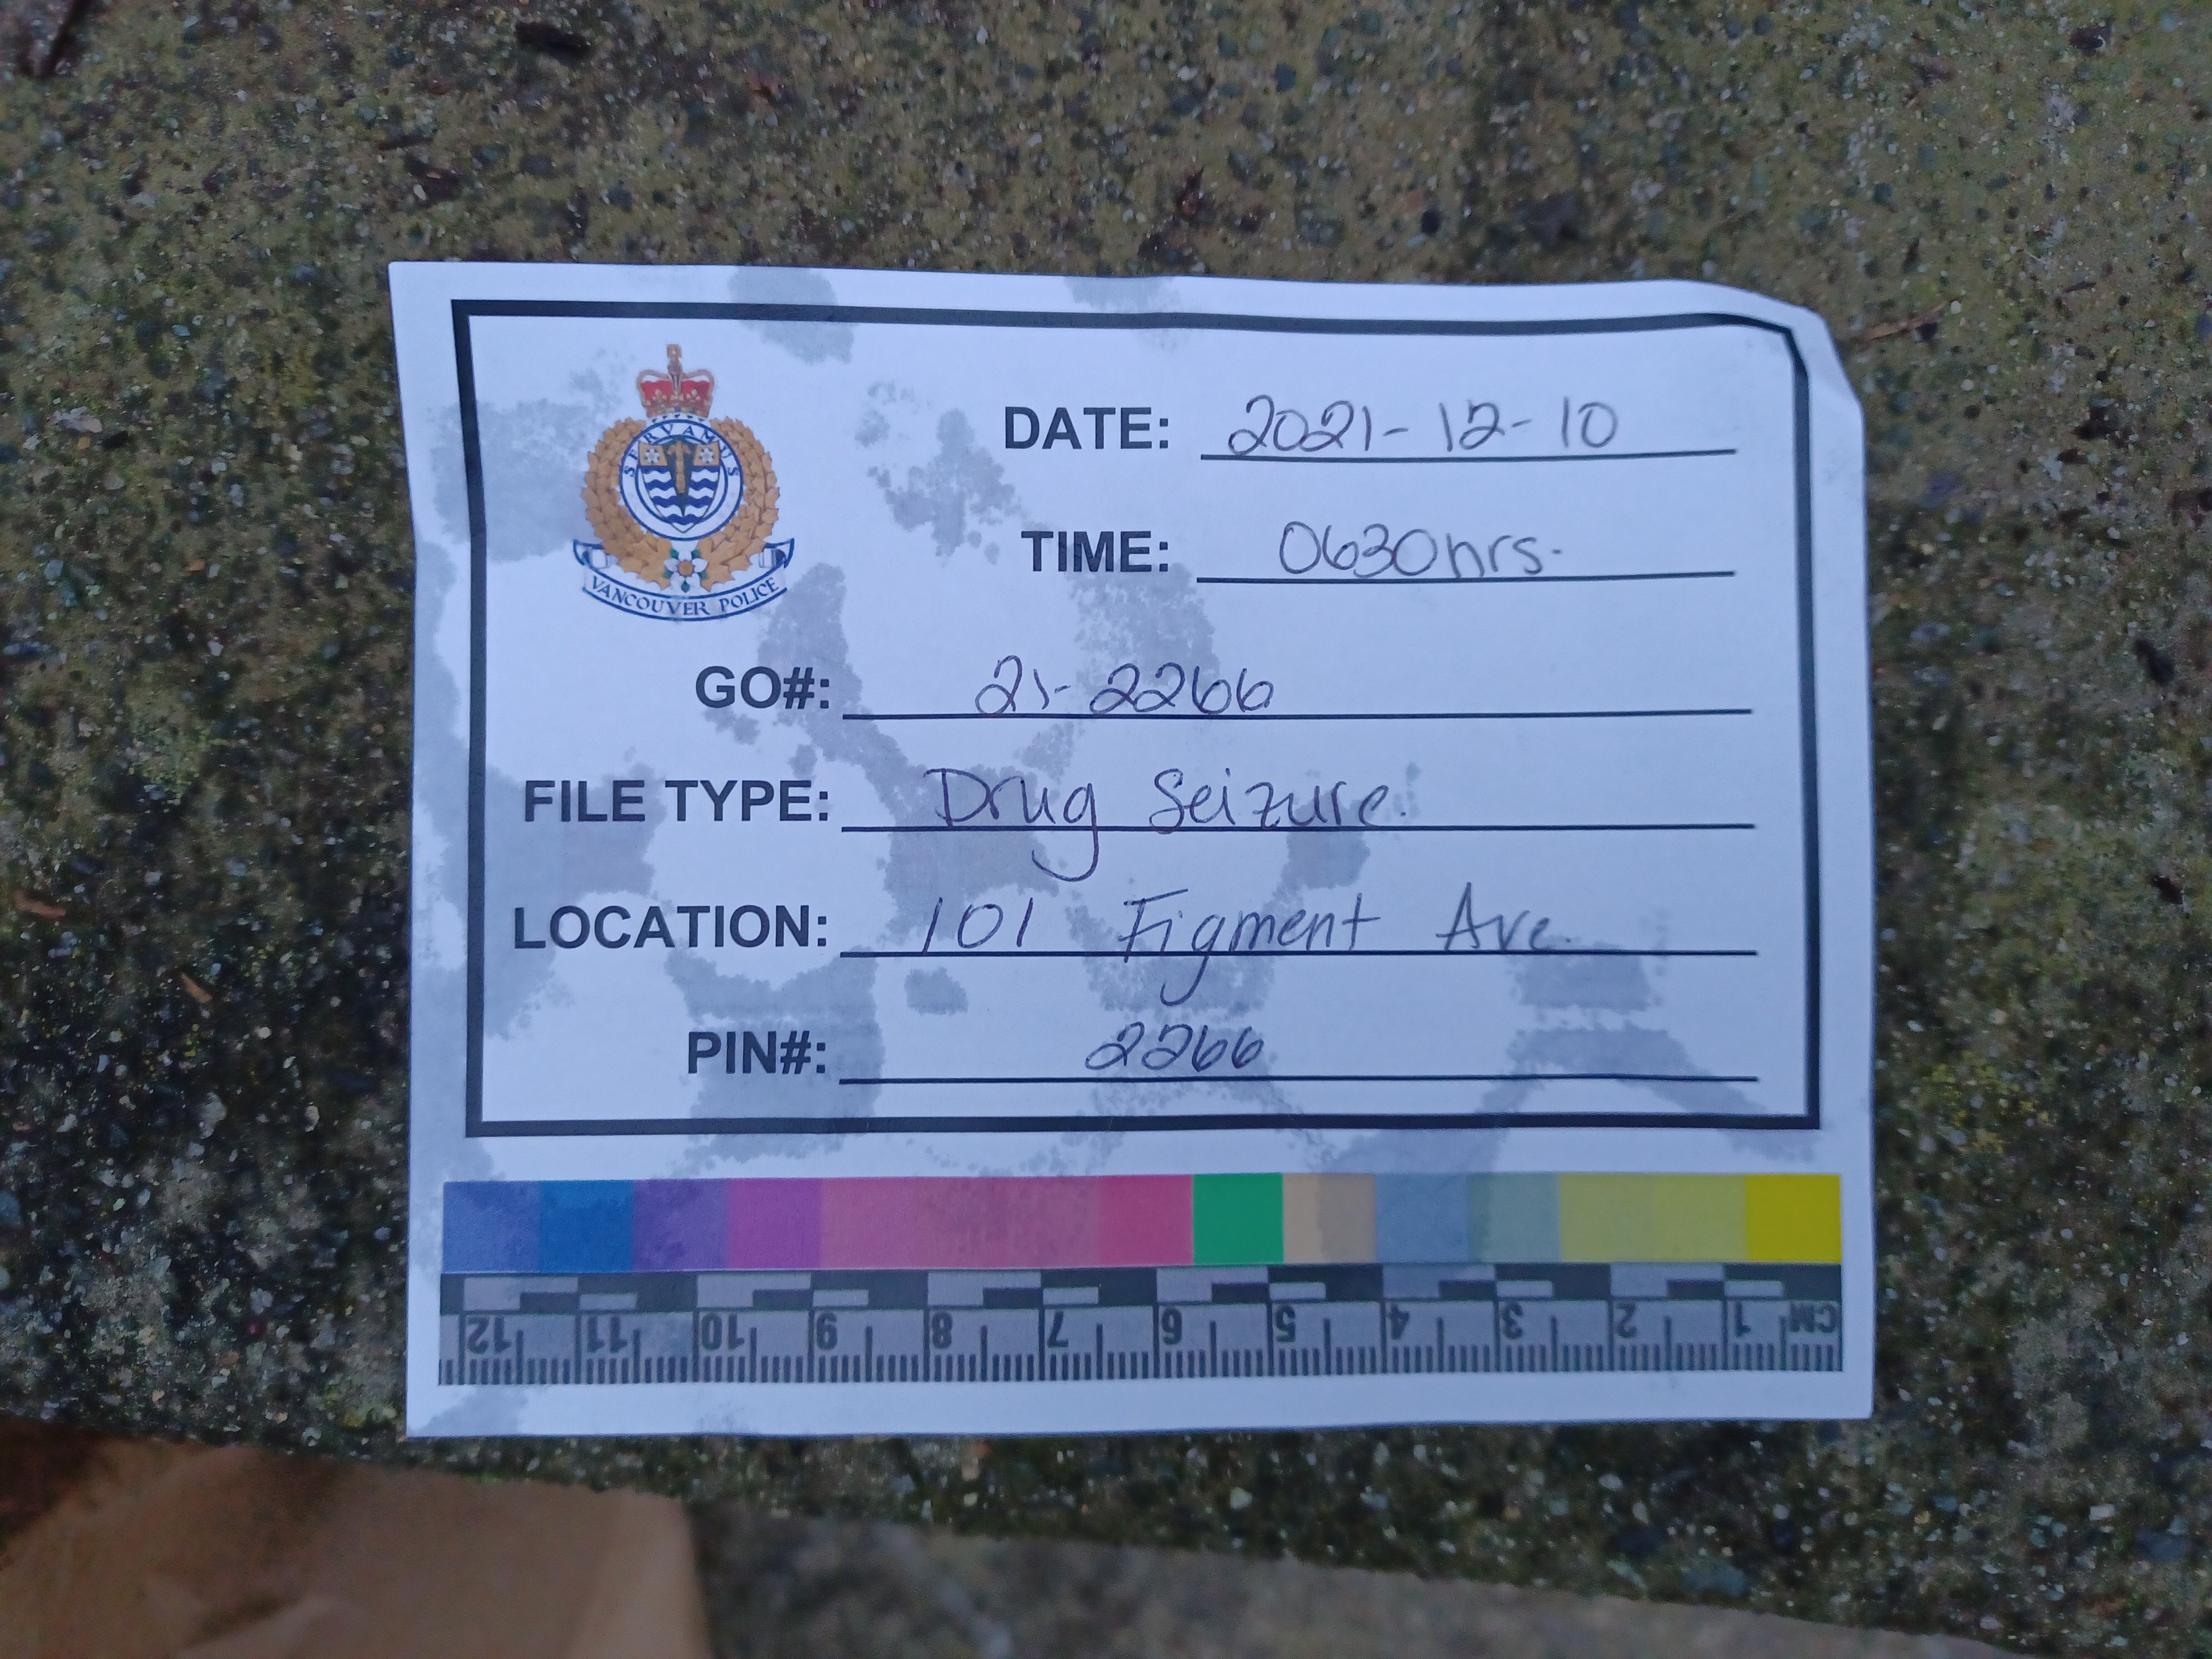 SERVAMUS
VANCOUVER POLICE
DATE: 2021-12-10
TIME: 0630hrs.
GO#: 21-2266
FILE TYPE: Drug Seizure.
LOCATION: 101 Figment Ave.
PIN#: 2266
12 11 10 9 8 7 6 5 4 3 2 1 CM